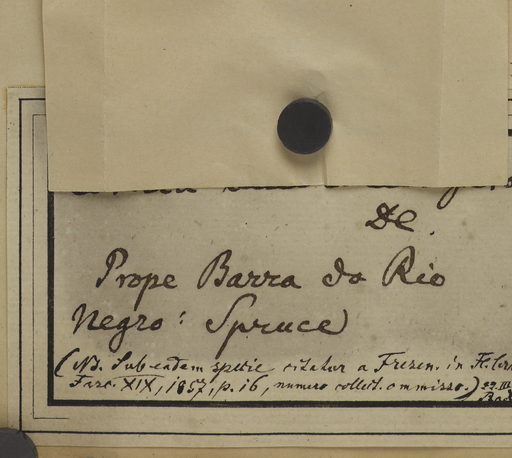 DC.
Prope Barra do Rio
Negro: Spruce
(NB. Sub eadem specie citatur a Fresen. in Fl.
Fasc. XIX, 1857, p. 16, numero collect. ommisso.)